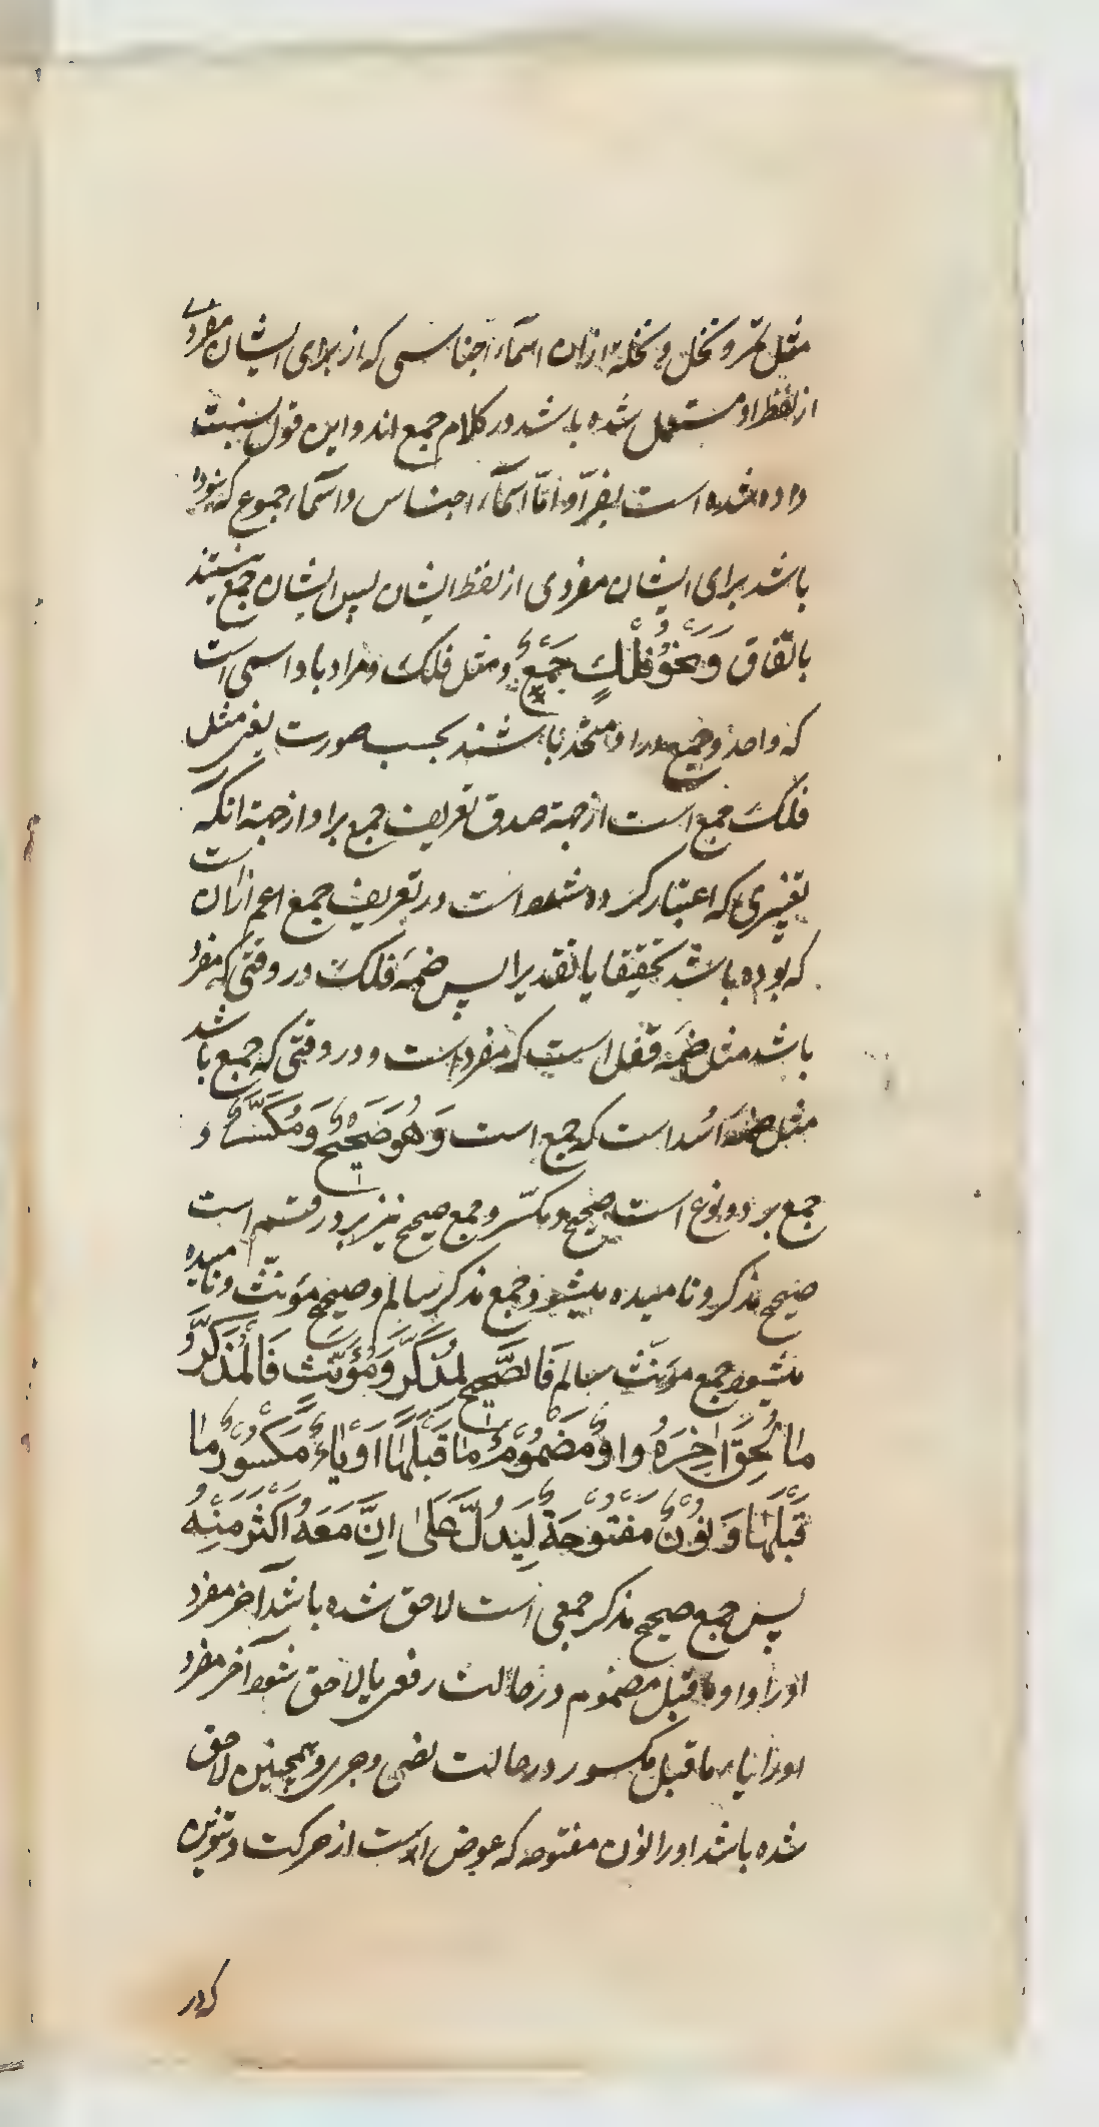 مثل تمر و نخل و نخلة ازان اسماء اجناسی که از برای ایشان مفردی
از لفظ او مستعمل شده باشد در کلام جمع اند و این قول نسبت
داده شده است بفرّا و امّا اسماء اجناس و اسماء جموع که نبوده
باشد برای ایشان مفردی از لفظ ایشان پس ایشان جمع نیستند
باتّفاق وَنَحْوُ فُلْكٍ جَمْعٌ و مثل فلک و مراد باو اسمی است
که واحد و جمع مر او را متّحد باشند بحسب صورت یعنی مثل
فلک جمع است از جهة صدق تعریف جمع بر او از جهة انکه
تغییری که اعتبار کرده شده است در تعریف جمع اعم ازان است
که بوده باشد تحقیقا یا تقدیرا پس ضمّه فلک در وقتی که مفرد
باشد مثل ضمّه قفل است که مفرد است و در وقتی که جمع باشد
مثل ضمّه اُسد است که جمع است وَهُوَ صَحِيْحٌ وَمُكَسَّرٌ و
جمع بر دو نوع است صحیح و مکسّر و جمع صحیح نیز بر دو قسم است
صحیح مذکر و نامیده میشود جمع مذکر سالم و صحیح مؤنّث و نامیده
میشود جمع مؤنّث سالم فَالصَّحِيْحُ لِمُذَكَّرٍ وَمُؤَنَّثٍ فَالْمُذَكَّرُ
مَا لَحِقَ اٰخِرَهُ وَاوٌ مَضْمُوْمٌ مَا قَبْلَهَا اَوْ يَاءٌ مَكْسُوْرٌ مَا
قَبْلَهَا وَنُوْنٌ مَفْتُوْحَةٌ لِيَدُلَّ عَلٰى اِنَّ مَعَهُ اَكْثَرَ مِنْهُ
پس جمع صحیح مذکر جمعی است لاحق شده باشد آخر مفرد
اورا واو ماقبل مضموم در حالت رفعی یا لاحق شود آخر مفرد
اورا یاء ماقبل مکسور در حالت نصبی و جری و همچنین لاحق
شده باشد اورا نون مفتوحه که عوض است از حرکت و تنوین
که در